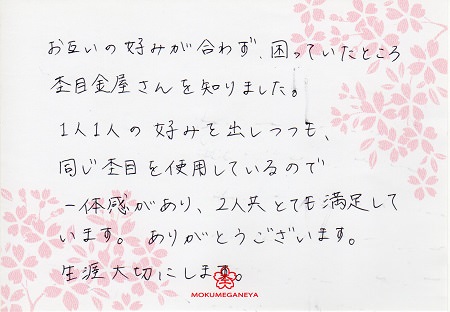 お互いの好みが合わず、困っていたところ
杢目金屋さんを知りました。
1人1人の好みを出しつつも、
同じ杢目を使用しているので
一体感があり、2人共とても満足して
います。ありがとうございます。
生涯大切にします。
MOKUMEGANEYA